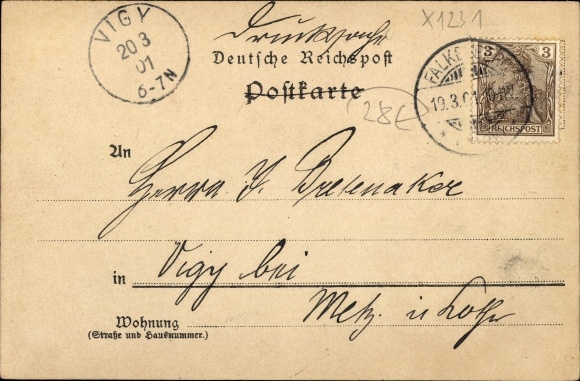 VIGY
20 3
01
6-7N
Drucksache
X1231
Deutsche Reichspost
Postkarte
28€
3 3
REICHSPOST
FALKE
19.3.01
An
Herrn J.
in Vigy bei
Metz i/Lothr
Wohnung
(Straße und Hausnummer.)